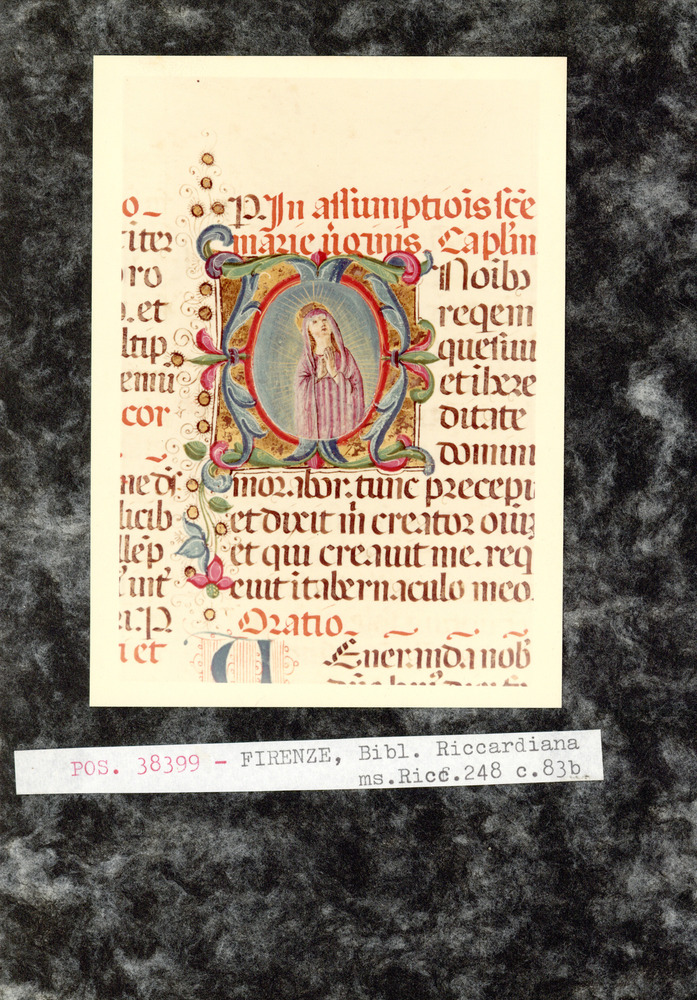 o
P. In assumptiois sce
iter
marie v̓gīnis. Caplm
ro
Noibꝫ
.et
reqem
ltip
quesiui
emū
et ī here
cor
ditate
domini
ne di
morabor: tunc precepi
licib
et dixit m̄ creator oiuȝ
llēp
et qui creauit me. req
uit
euit ī tabernaculo meo.
: P
Oratio
i et
Uenerāda nob
POS. 38399 - FIRENZE, Bibl. Riccardiana
ms.Ricc.248 c.83b